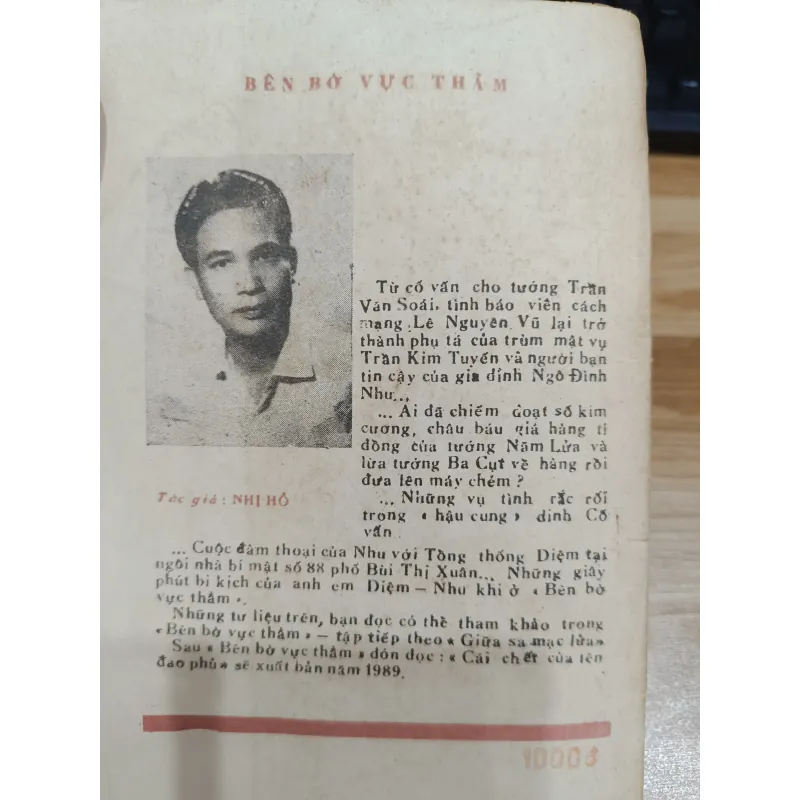 BÊN BỜ VỰC THẲM
Từ cố vấn cho tướng Trần
Văn Soái, tình báo viên cách
mạng Lê Nguyên Vũ lại trở
thành phụ tá của trùm mật vụ
Trần Kim Tuyến và người bạn
tin cậy của gia đình Ngô Đình
Nhu...
... Ai đã chiếm đoạt số kim
cương, châu báu giá hàng tỉ
đồng của tướng Năm Lửa và
lừa tướng Ba Cụt về hàng rồi
đưa lên máy chém ?
... Những vụ tình rắc rối
trong « hậu cung » dinh Cố
vấn.
Tác giả : NHỊ HỒ
... Cuộc đàm thoại của Nhu với Tổng thống Diệm tại
ngôi nhà bí mật số 88 phố Bùi Thị Xuân... Những giây
phút bi kịch của anh em Diệm — Nhu khi ở « Bên bờ
vực thẳm ».
Những tư liệu trên, bạn đọc có thể tham khảo trong
«Bên bờ vực thẳm » — tập tiếp theo « Giữa sa mạc lửa»
Sau « Bên bờ vực thẳm » đón đọc : « Cái chết của tên
đao phủ» sẽ xuất bản năm 1989.
1000đ